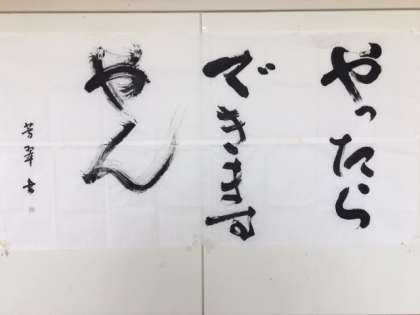 やったら
できます
やん
芳翠書